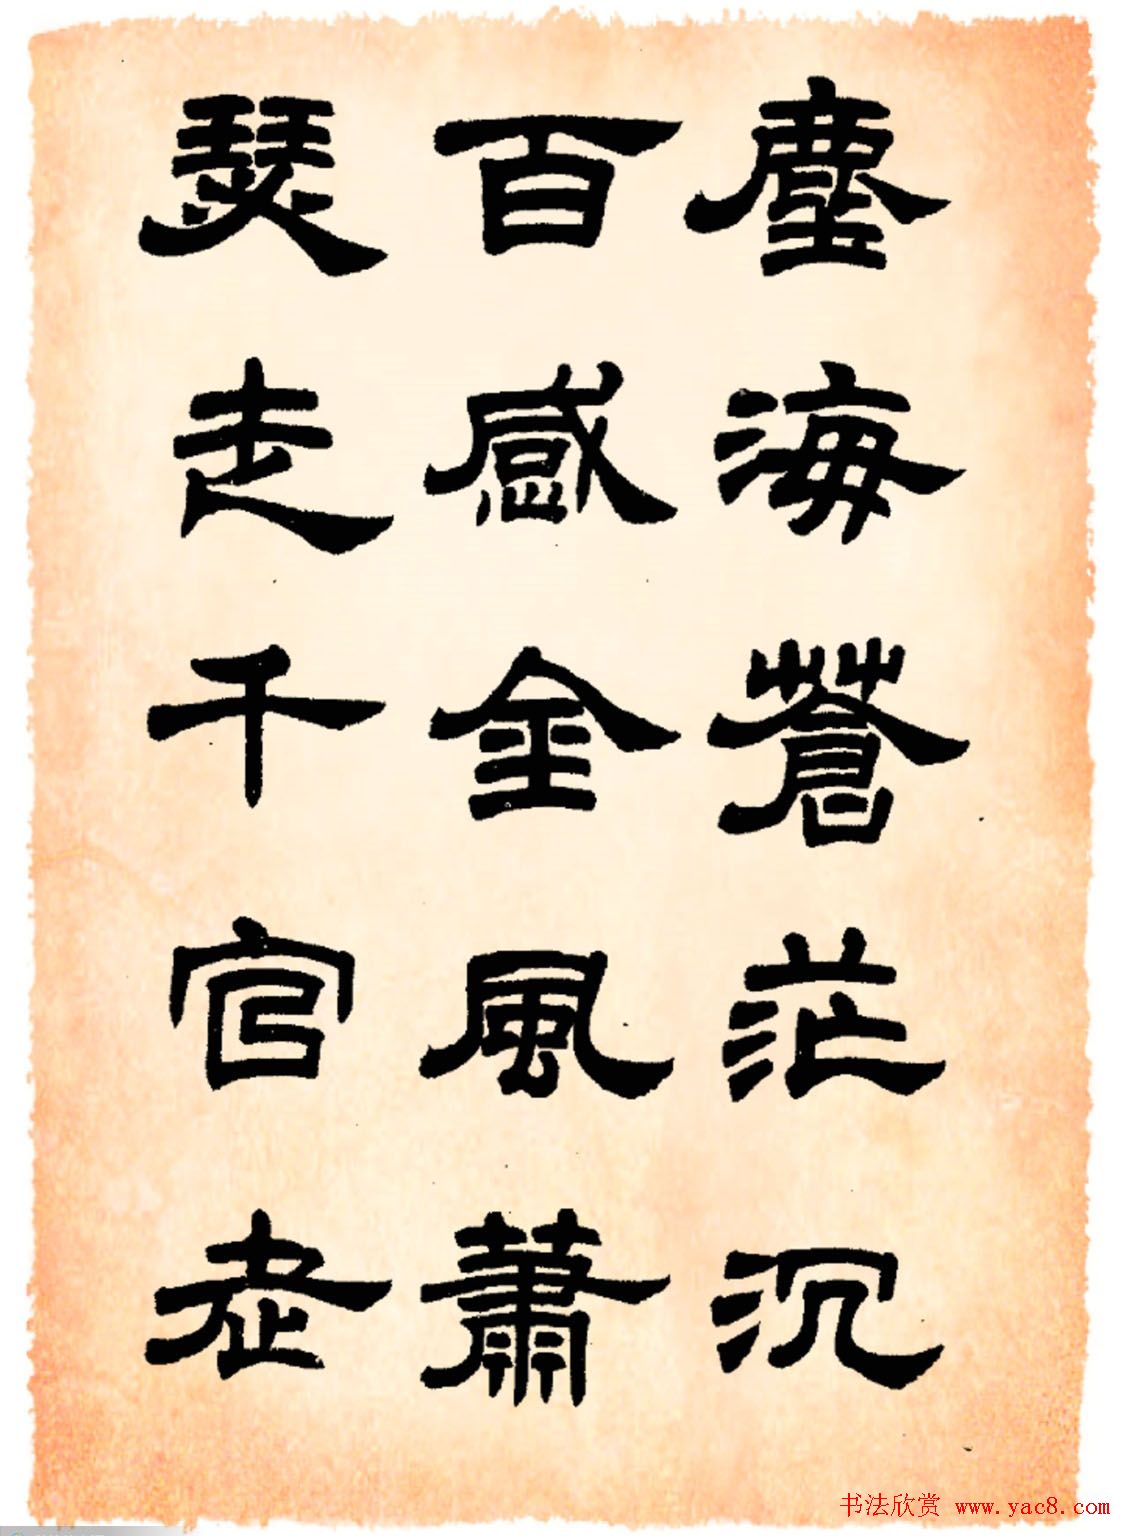 塵海蒼茫沉
百感金風蕭
瑟走千官老
书法欣赏 www.yac8.com